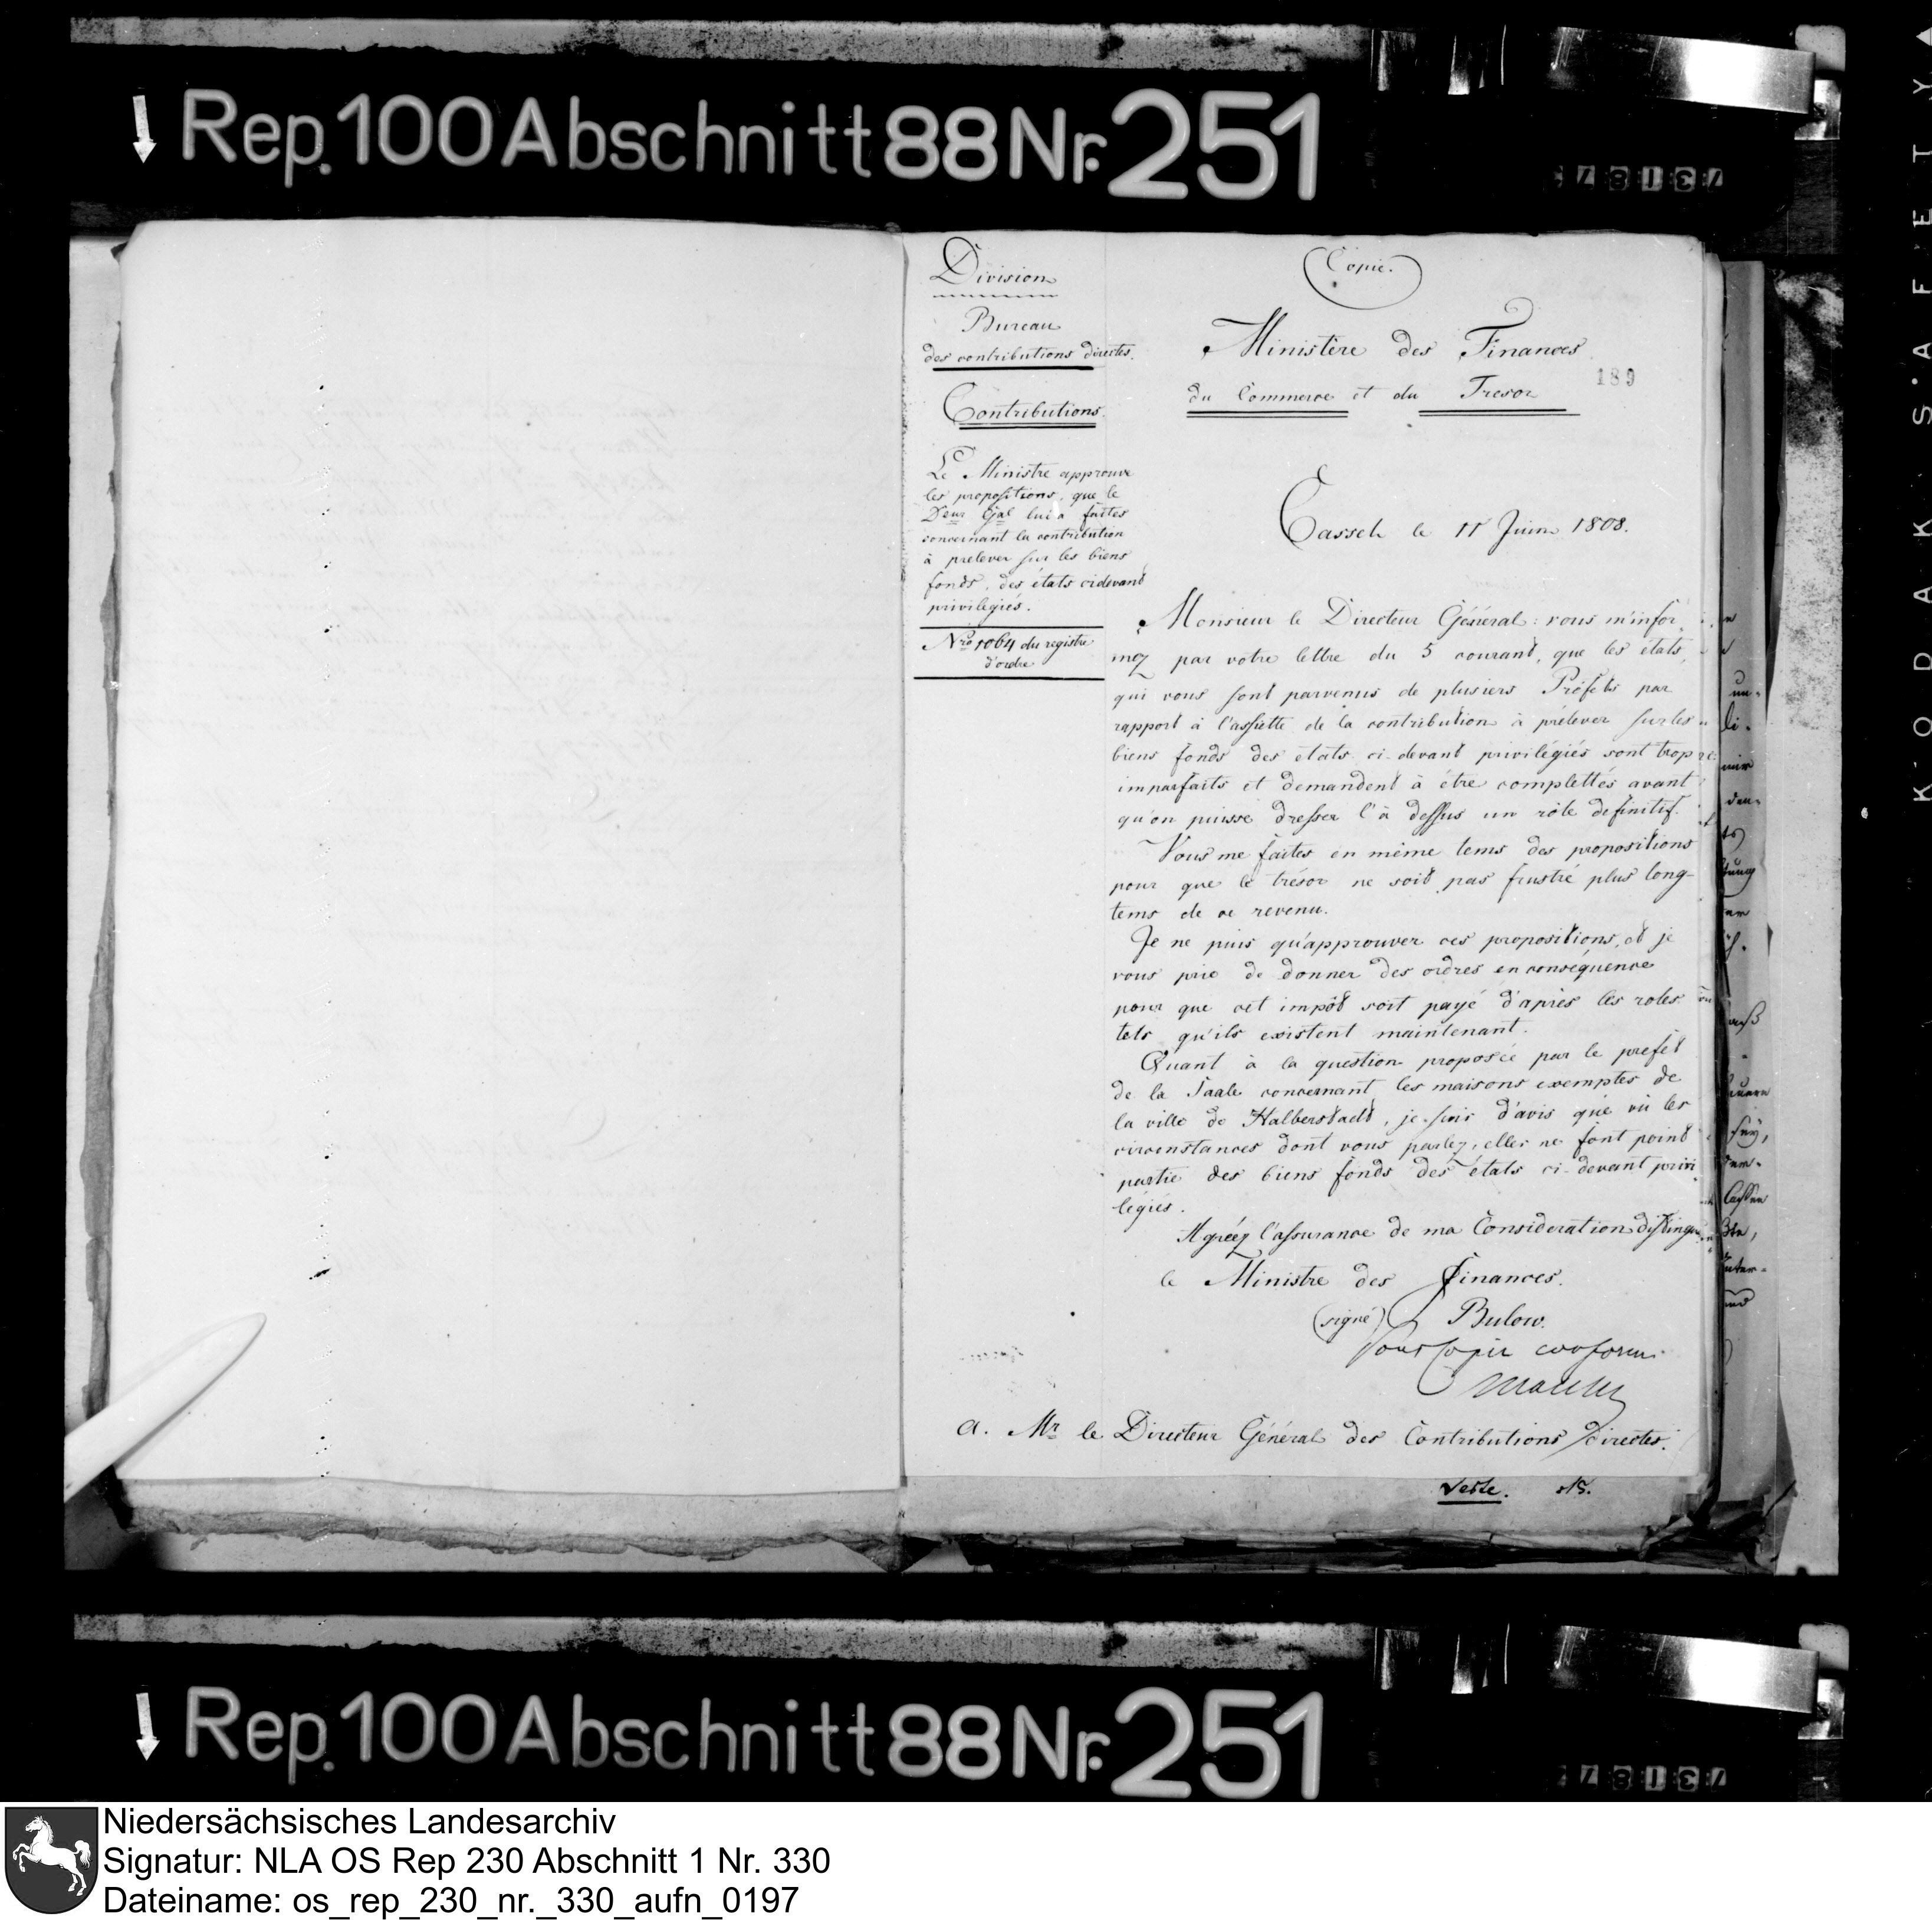 Rep. 100 Abschnitt 88 Nr. 251
Division
Bureau
des contributions directes.
Contributions.
Le Ministre approuve
les propositions, que le
Deur Gal lui a faites
concernant la contribution
à prelever sur les biens
fonds, des états cidevant
privilegiés.
Nro 1064 du registre
d'ordre
Copie.
Ministère des Finances
189
du Commerce et du Tresor
Cassel le 11 Juin 1808.
Monsieur le Directeur Général: vous m'infor
mez par votre lettre du 5 courant, que les états,
qui vous sont parvenus de plusiers Préfets par
rapport à l'assiette de la contribution à prélever sur les
biens fonds des états ci-devant privilégiés sont trop
imparfaits et demandent à être complettés avant
qu'on puisse dresser l'à dessus un rôle definitif.
Vous me faites en même tems des propositions
pour que le trésor ne soit pas frustré plus long-
tems de ce revenu.
Je ne puis qu'approuver ces propositions, et je
vous prie de donner des ordres en conséquence
pour que cet impôt soit payé d'après les roles
tels qu'ils existent maintenant.
Quant à la question proposée par le prefet
de la Saale concernant les maisons exemptes de
la ville de Halberstadt, je suis d'avis que vû les
circonstances dont vous parlez, elles ne font point
partie des biens fonds des états ci-devant privi
légiés.
Agréez l'assurance de ma Consideration
le Ministre des Finances.
(signé) Bulow.
Pour Copie conforme
a. Mr le Directeur Général des Contributions directes.
Rep. 100 Abschnitt 88 Nr. 251
KODAK SAFETY
Niedersächsisches Landesarchiv
Signatur: NLA OS Rep 230 Abschnitt 1 Nr. 330
Dateiname: os_rep_230_nr._330_aufn_0197